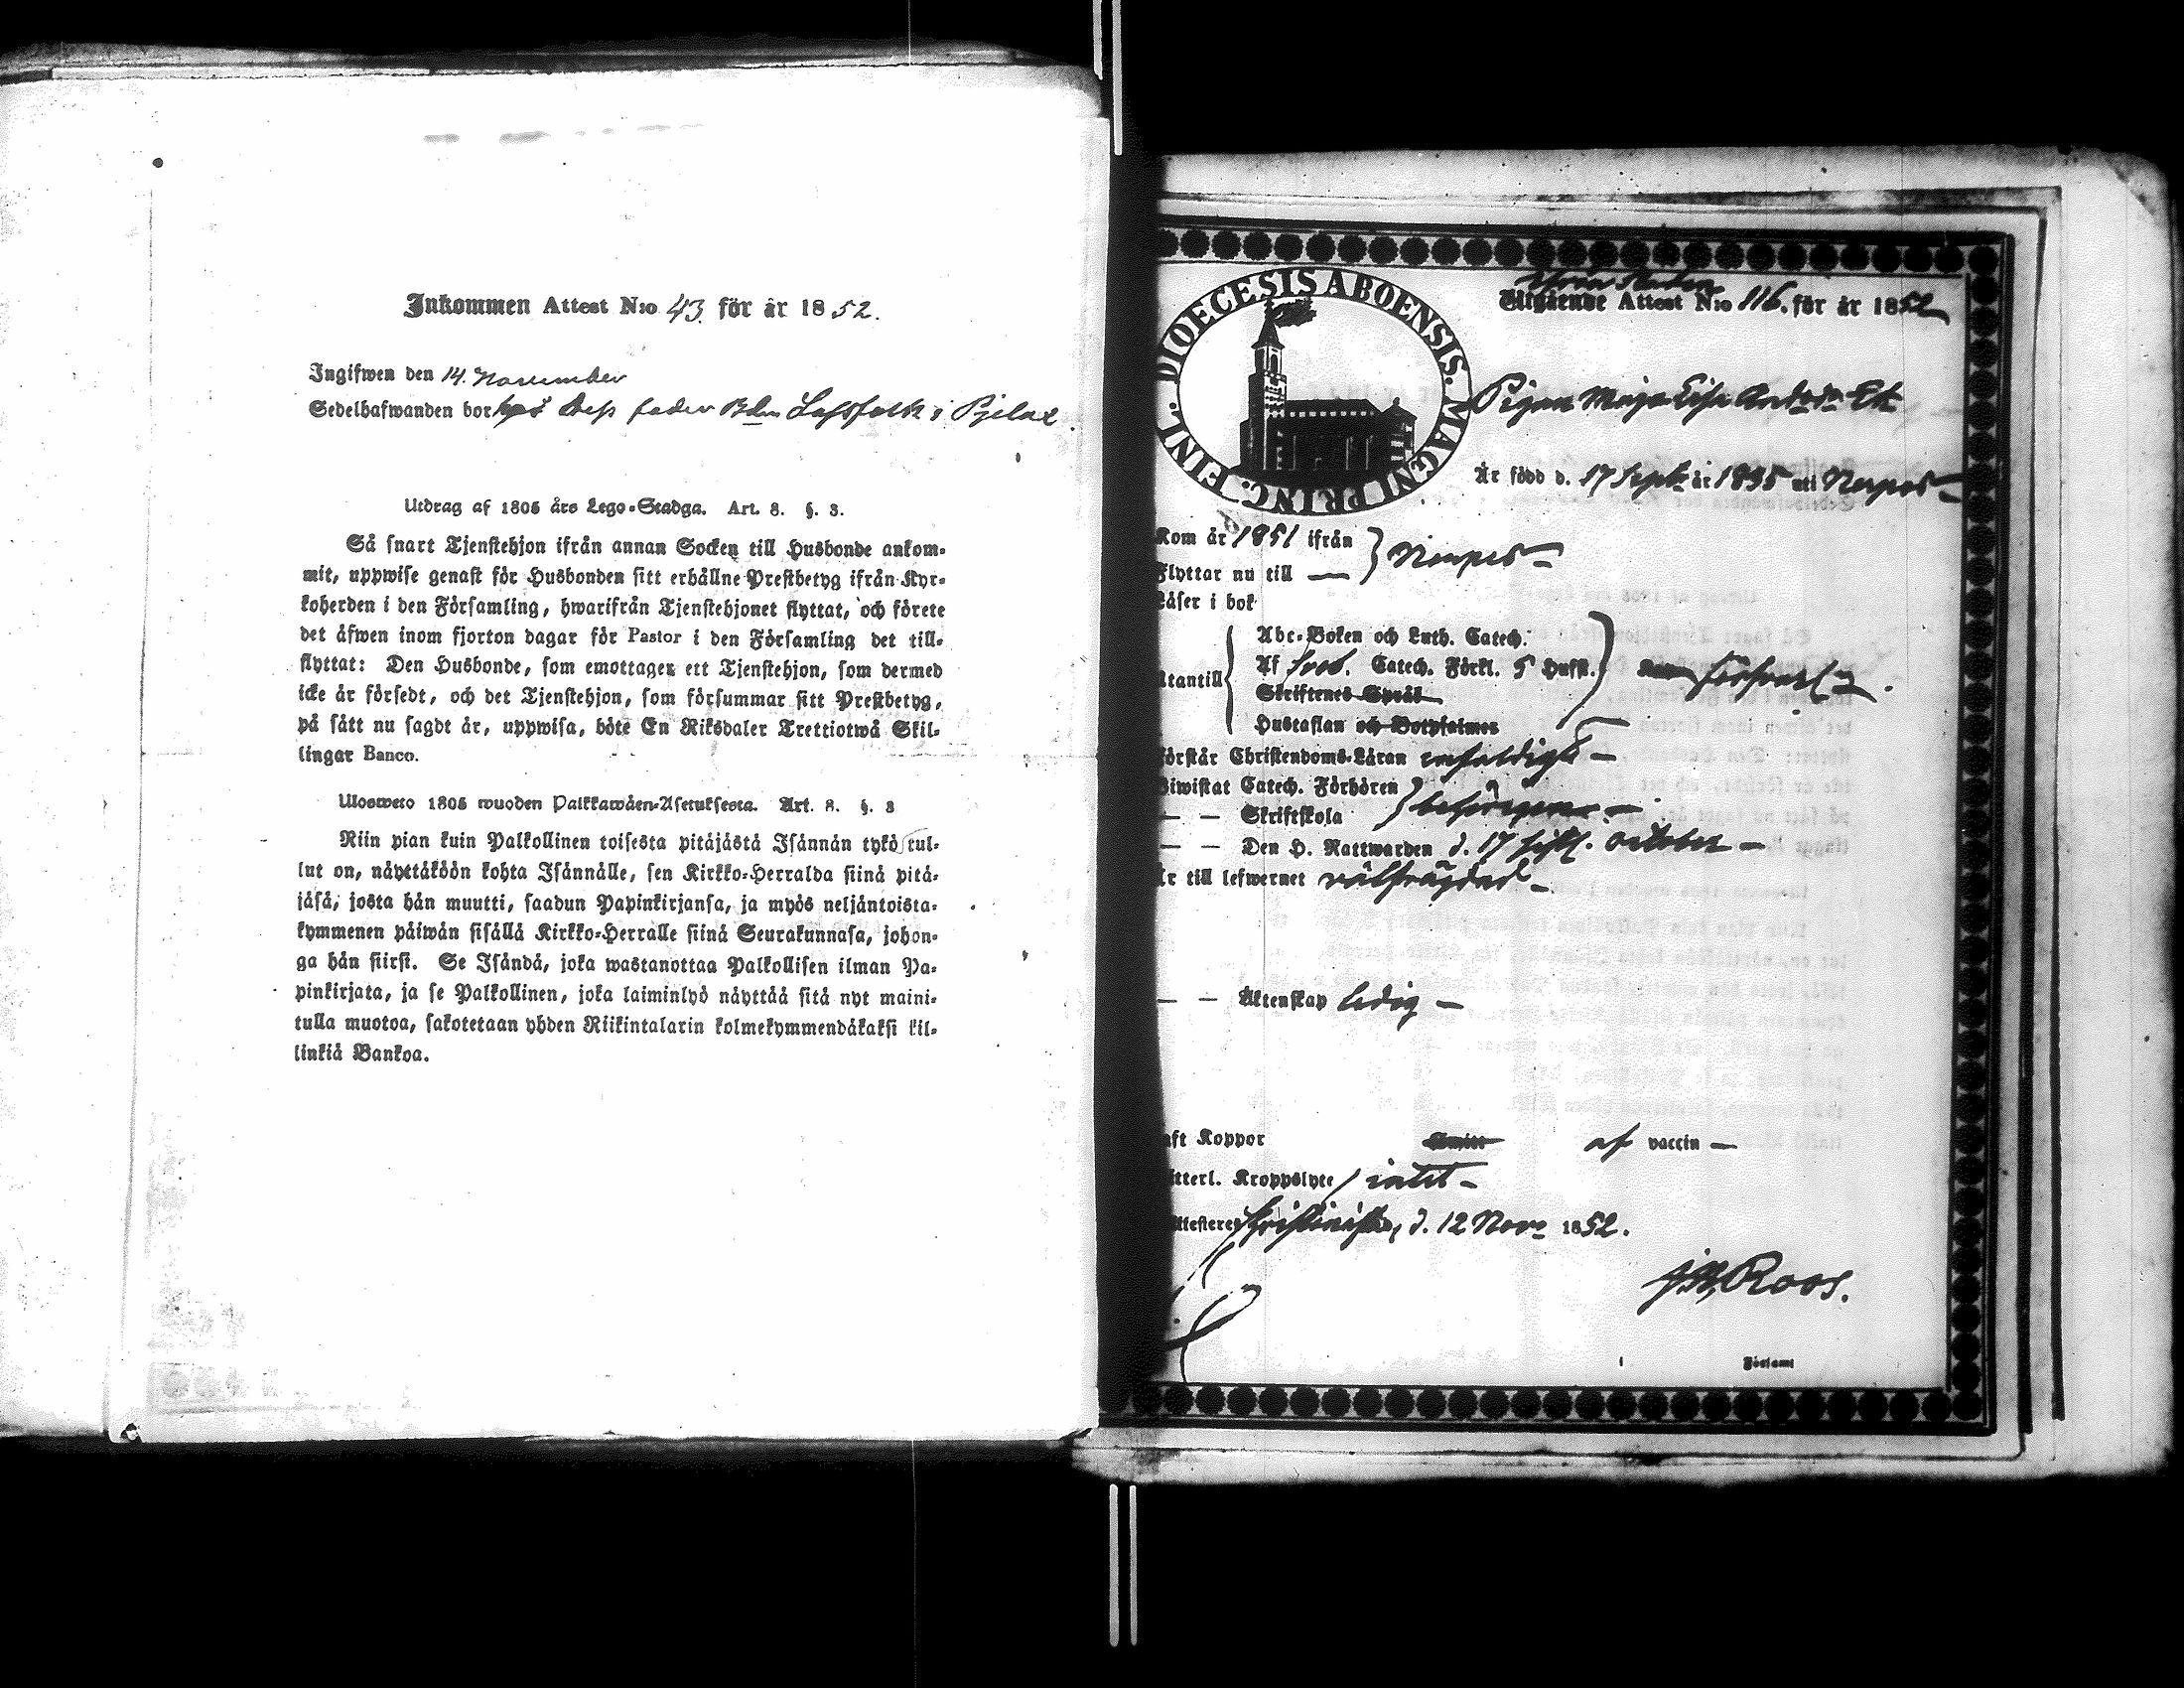 Inkommen Attest N:o 43 för år 1852.
Ingifwen den 14. November
Sedelhafwanden bor hos dess fader Bdn i Pjelax
Utdrag af 1805 års Lego-Stadga. Art. 8. §. 3.
Så snart Tjenstehjon ifrån annan Socken till Husbonde ankom-
mit, uppwise genast för Husbonden sitt erhållne Prestbetyg ifrån Kyr-
koherden i den Församling, hwarifrån Tjenstehjonet flyttat, och förete
det åfwen inom fjorton dagar för Pastor i den Församling det till-
flyttat: Den Husbonde, som emottager ett Tjenstehjon, som dermed
icke är försedt, och det Tjenstehjon, som försummar sitt Prestbetyg,
på sätt nu sagdt är, uppwisa, böte En Riksdaler Trettiotwå Skil-
lingar Banco.
Ulosweto 1805 wuoden Palkkawäen-Asetuksesta. Art. 8. §. 3
Niin pian kuin Palkollinen toisesta pitäjästä Isännän tykö tul-
lut on, näyttäköön kohta Isännälle, sen Kirkko-Herralda siinä pitä-
jäsä, josta hän muutti, saadun Papinkirjansa, ja myös neljäntoista-
kymmenen päiwän sisällä Kirkko-Herralle siinä Seurakunnasa, johon-
ga hän siirsi. Se Isändä, joka wastanottaa Palkollisen ilman Pa-
pinkirjata, ja se Palkollinen, joka laiminlyö näyttää sitä nyt maini-
tulla muotoa, sakotetaan yhden Riikintalarin kolmekymmendäkaksi kil-
linkiä Bankoa.
DIOECESIS ABOENSIS. MAGNI PRINC. FINL.
Utgående Attest N:o 116. för år 1852
Pigan Maja Lisa Andersdr
Är född d. 17 Sept. år 1835 uti Nerpes
Kom år 1851 ifrån
Flyttar nu till — Nerpes
Läser i bok
Abc-Boken och Luth. Catech.
Af Sveb. Catech. Förkl. 5 Hufst.
Utantill försvarl.
Skriftenes Språk
Hustaflan och Botpsalmer
Förstår Christendoms-Läran enfaldigt
Biwistat Catech. Förhören
— — Skriftskola behörigen
— — Den H. Nattwarden d. 17 sistl. october
Är till lefwernet välfrägdad
— — Äktenskap ledig
Haft Koppor af vaccin
Ytterl. Kroppslyte intet
Attesterer d. 12 Nov. 1852.
Roos.
Förssamt